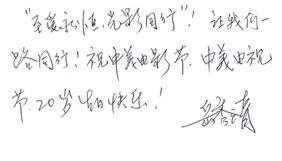 “至爱永恒,光影同行”! 让我们一
路同行! 祝中美电影节、中美电视
节 20岁生日快乐!